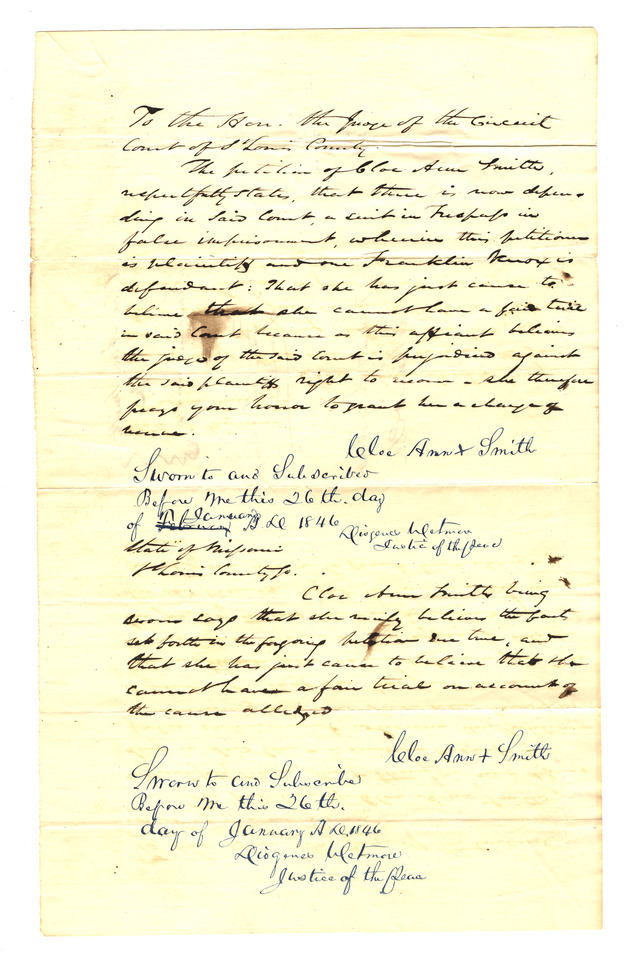 To the Hon. the Judge of the Circuit
Court of St Louis County.
The petition of Cloe Ann Smith,
respectfully States, that there is now depen-
ding in Said Court, a suit in Trespass in
false imprisonment, wherein this petitioner
is plaintiff and one Franklin Knox is
defendant: That she has just cause to
believe that she cannot have a fair trial
in said Court because as this affiant believes
the judge of the said Court is prejudiced against
the said plaintiffs right to recover - she therefore
prays your honor to grant her a change of
venue.
Cloe Ann + Smith
Sworn to and Subscribed
Before Me this 26th. day
of January A D 1846
Diogenes Wetmore
Justice of the Peace
State of Missouri
St Louis County Ss.
Cloe Ann Smith being
sworn says that she verily believes the facts
set forth in the forgoing petition are true, and
that she has just cause to believe that she
cannot have a fair trial on account of
the cause alledged
Cloe Ann + Smith
Sworn to and Subscribe
Before Me this 26th.
day of January A D. 1846
Diogenes Wetmore
Justice of the Peace